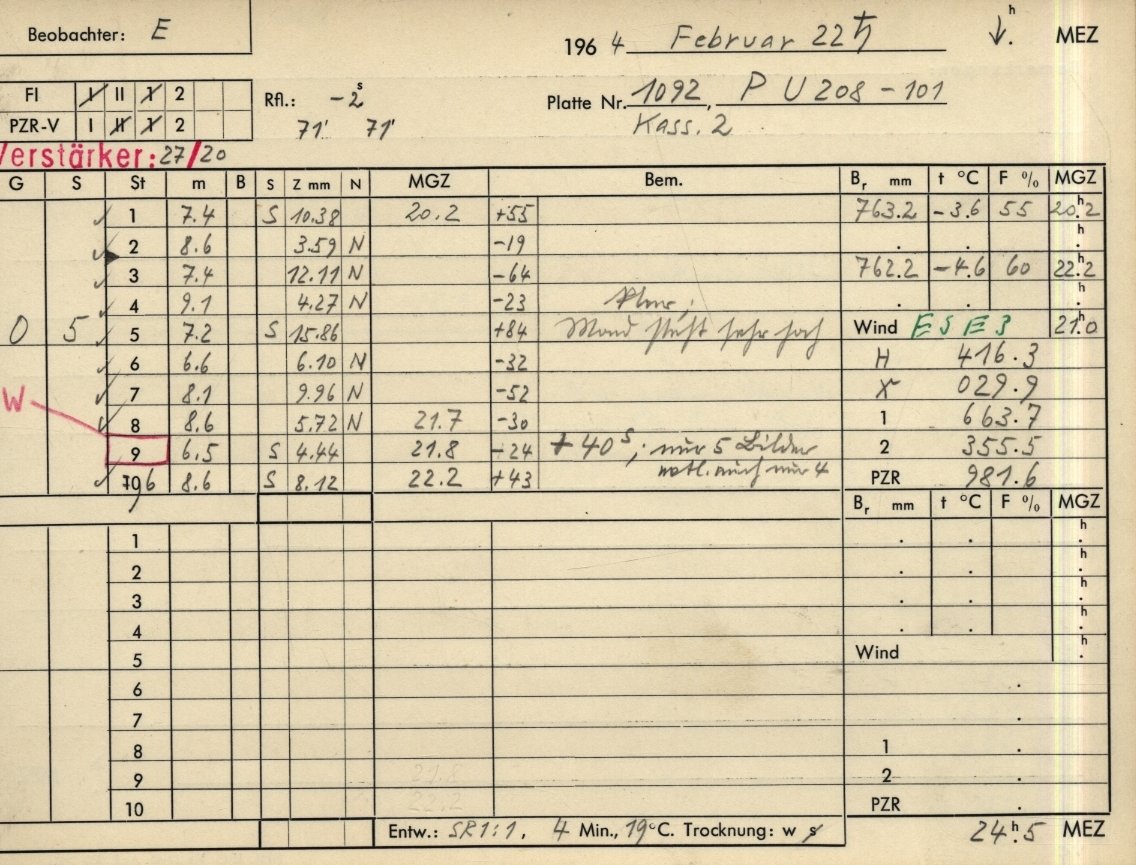 Beobachter: E
1964 Februar 22 ♄ h MEZ
FI I II 1 2
PZR-V I II 1 2
Rfl.: -2s
71' 71'
Platte Nr. 1092, P U 208 - 101
Kass. 2
Verstärker: 27/20
G S St m B S Z mm N MGZ Bem. Br mm t °C F % MGZ
1 7.4 S 10.38 20.2 +55 763.2 -3.6 55 20h.2
2 8.6 3.59 N -19 . . h.
3 7.4 12.11 N -64 762.2 -4.6 60 22h.2
4 9.1 4.27 N -23 . . h.
0 5 5 7.2 S 15.86 +84 Mond steht sehr hoch Wind ESE 3 21.0
6 6.6 6.10 N -32 H 416.3
7 8.1 9.96 N -52 029.9
W
8 8.6 5.72 N 21.7 -30 1 663.7
9 6.5 S 4.44 21.8 +24 +40s; nur 5 Bilder 2 355.5
evtl. auch nur 4
10 8.6 S 8.12 22.2 +43 PZR 981.6
Br mm t °C F % MGZ
1 . . h.
2 . . h.
3 . . h.
4 . . h.
5 Wind h.
6 .
7 .
8 1 .
9 2 .
10 PZR .
Entw.: SR1:1, 4 Min., 19°C. Trocknung: w s 24h.5 MEZ